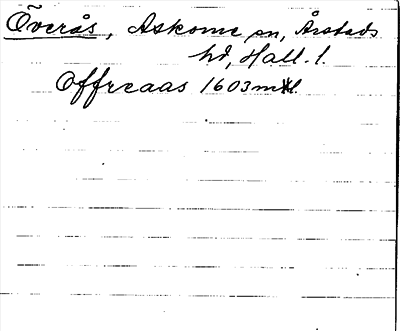 Överås, Askome sn, Årstads
hd, Hall. l.
Offreaas 1603